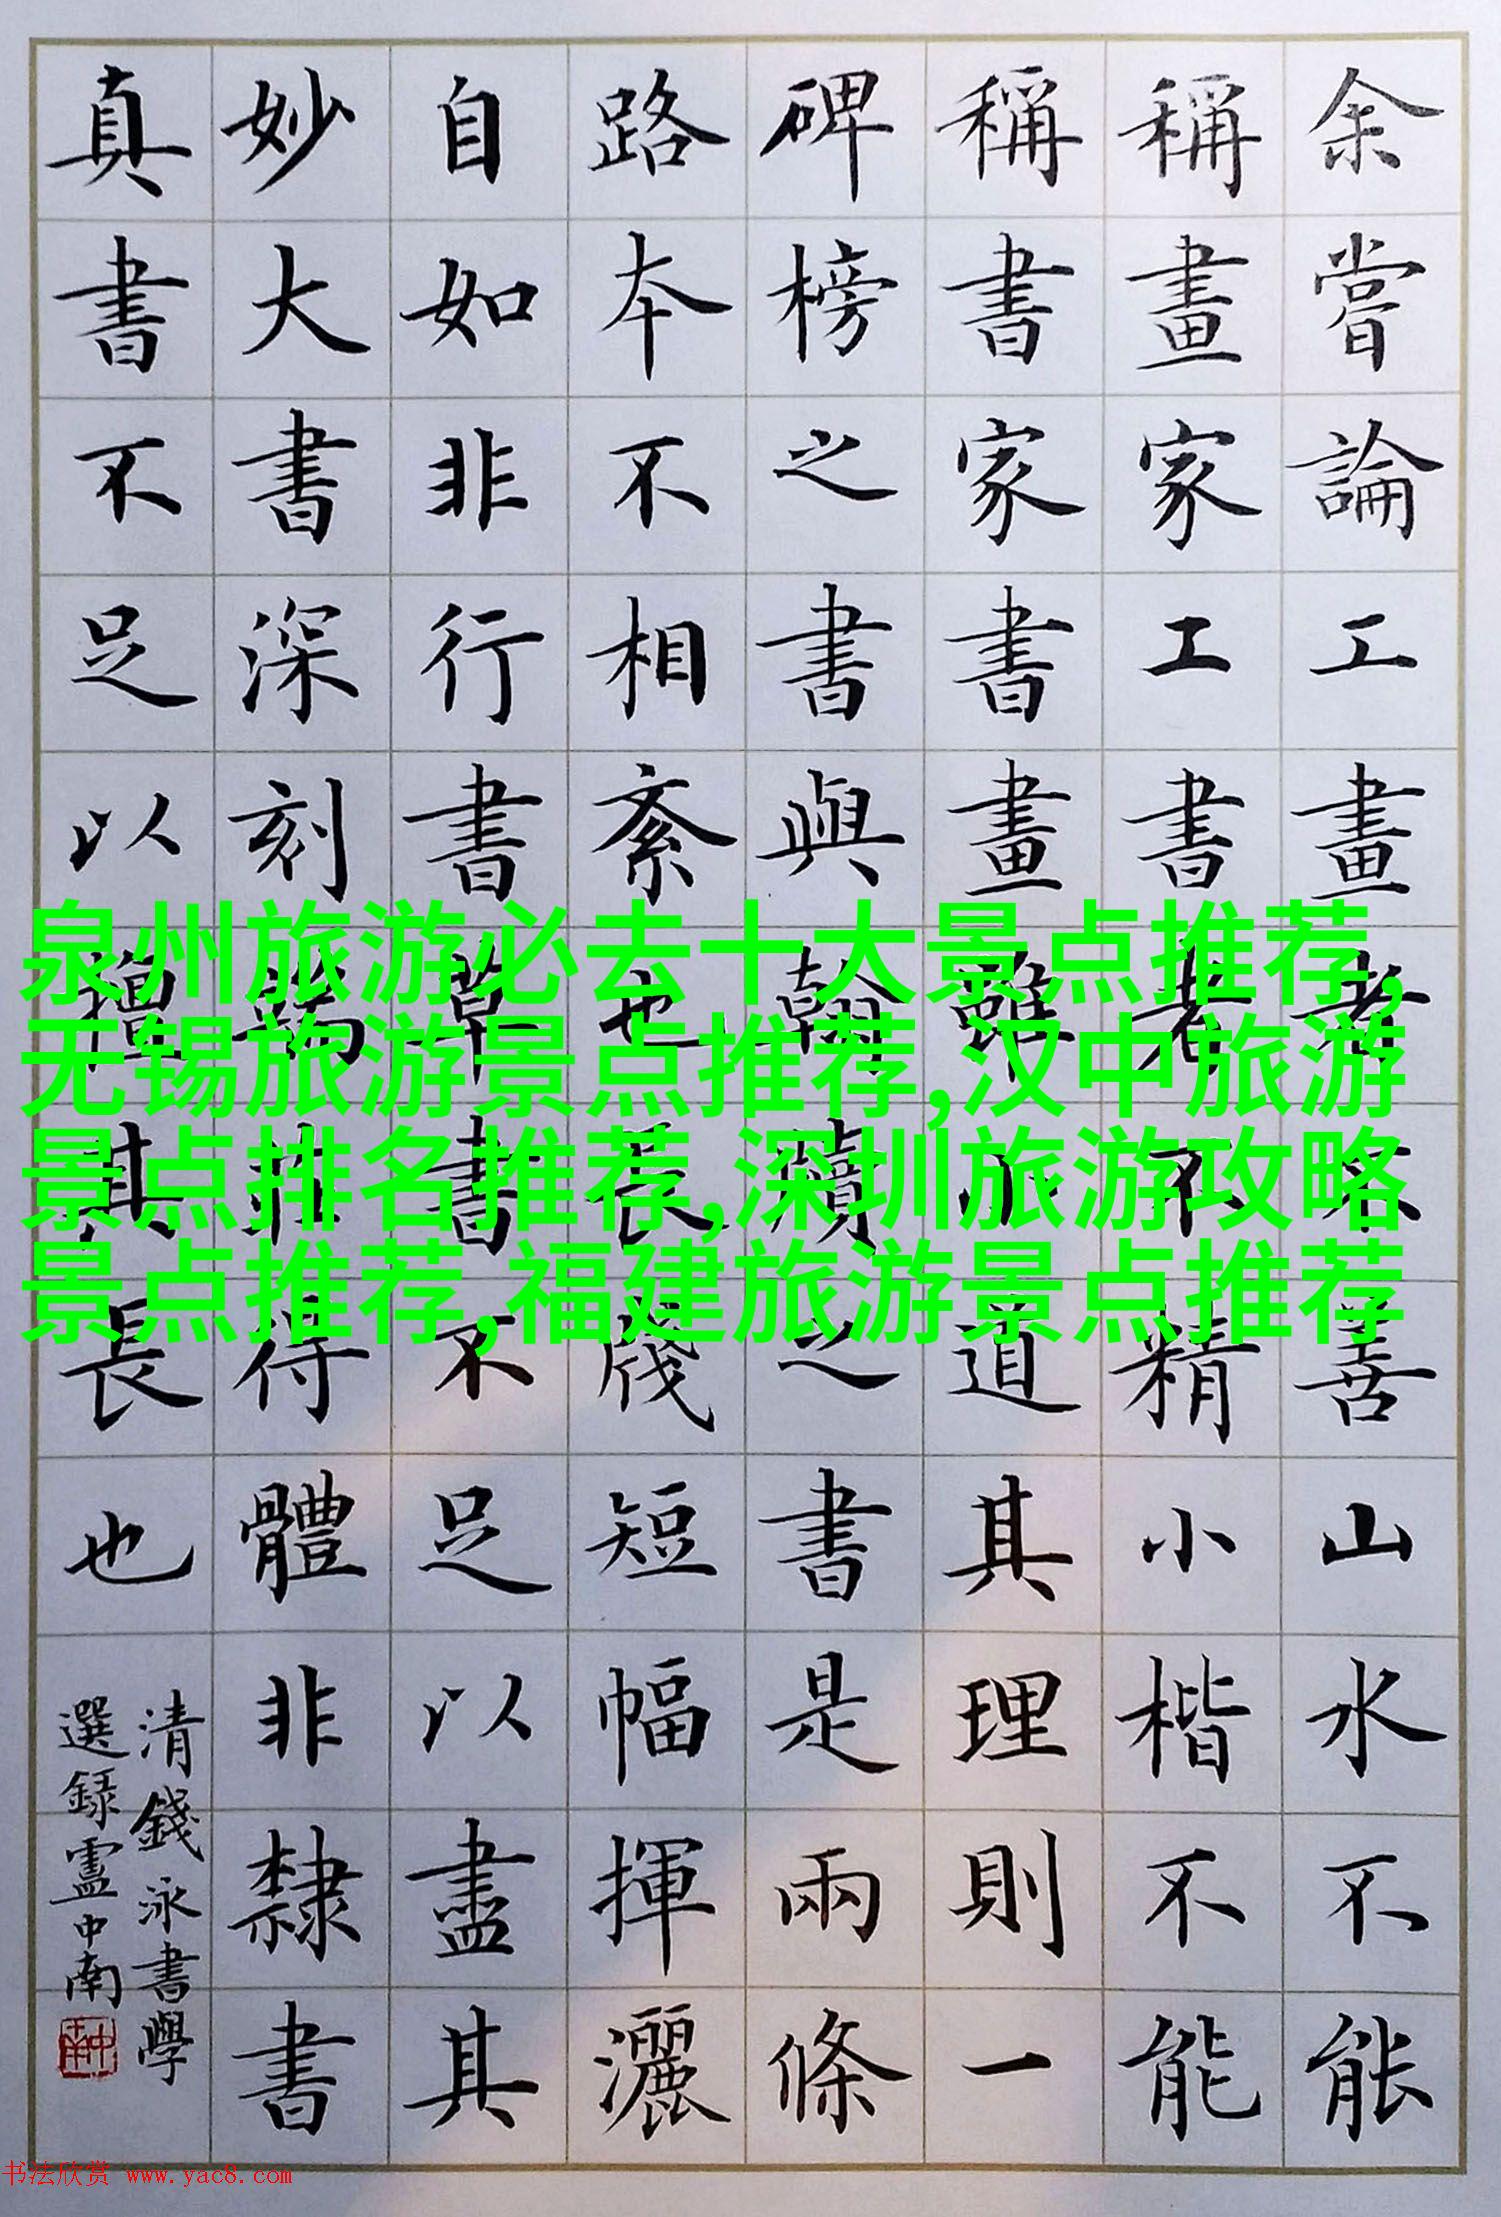 余嘗論工畫者不善山水不能
稱畫家工書者不精小楷不能
稱書家書畫雖小道其理則一
碑榜之書與翰牘之書是兩條
路本不相紊也長牋短幅揮灑
自如非行書草書不足以盡其
妙大書深刻端莊得體非隸書
真書不足以擅其長也
清錢泳書學
選録盧中南
泉州旅游必去十大景点推荐,
无锡旅游景点推荐,汉中旅游
景点排名推荐,深圳旅游攻略
景点推荐,福建旅游景点推荐
书法欣赏 www.yac8.com